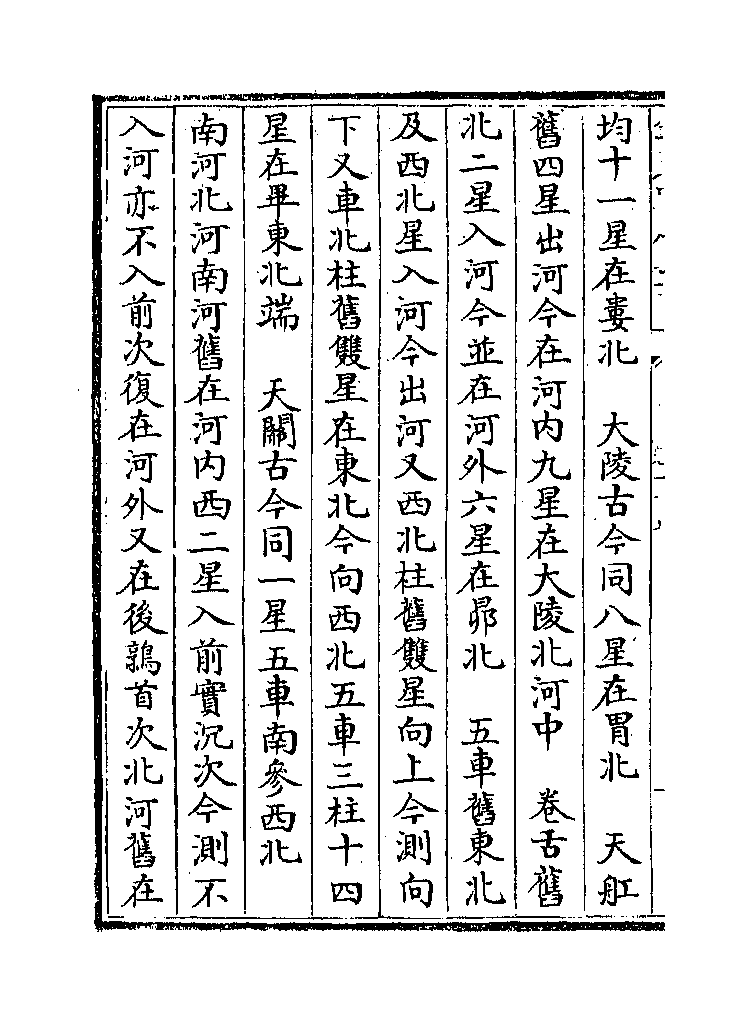 均十一星在婁北　大陵古今同八星在胃北　天舡
舊四星出河今在河内九星在大陵北河中　卷舌舊
北二星入河今並在河外六星在昴北　五車舊東北
及西北星入河今出河又西北柱舊雙星向上今測向
下又車北柱舊雙星在東北今向西北五車三柱十四
星在畢東北端　天關古今同一星五車南參西北
南河北河南河舊在河内西二星入前實沉次今測不
入河亦不入前次復在河外又在後鶉首次北河舊在